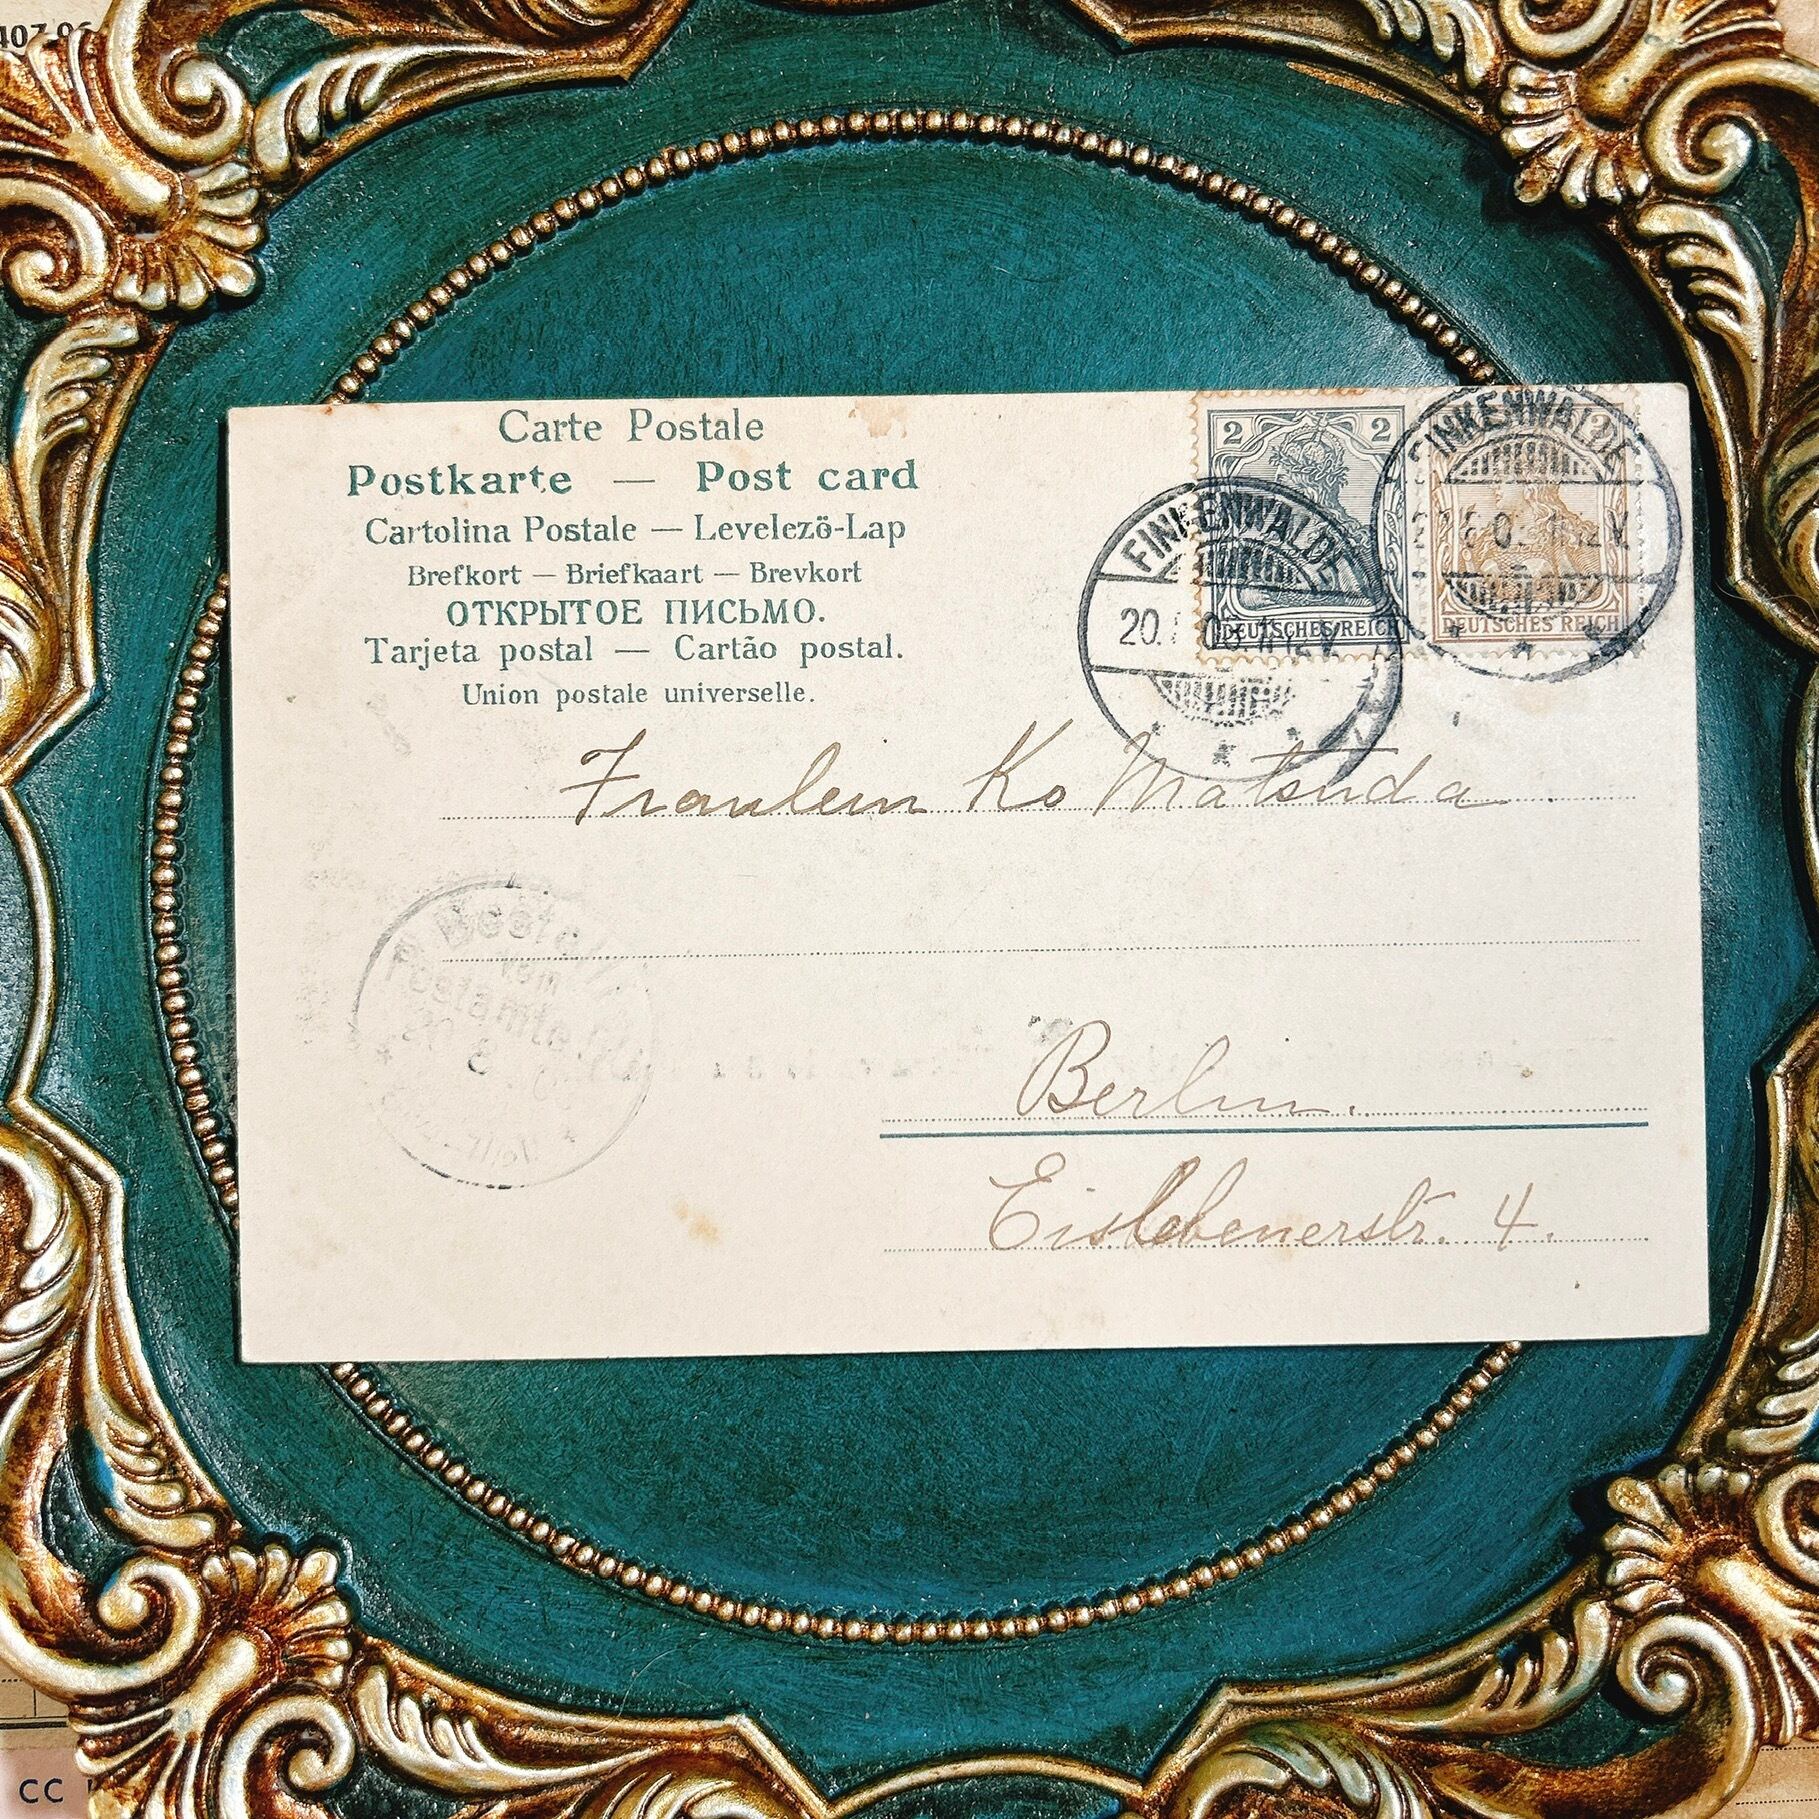 Carte Postale
Postkarte — Post card
Cartolina Postale — Levelező-Lap
Brefkort — Briefkaart — Brevkort
ОТКРЫТОЕ ПИСЬМО.
Tarjeta postal — Cartão postal.
Union postale universelle.
2 2
DEUTSCHES REICH
2
DEUTSCHES REICH
FINKENWALDE
FINKENWALDE
Fraulein Ko Matsuda
Bestellt
vom
Postamte
Berlin.
Eislebenerstr. 4.
CC